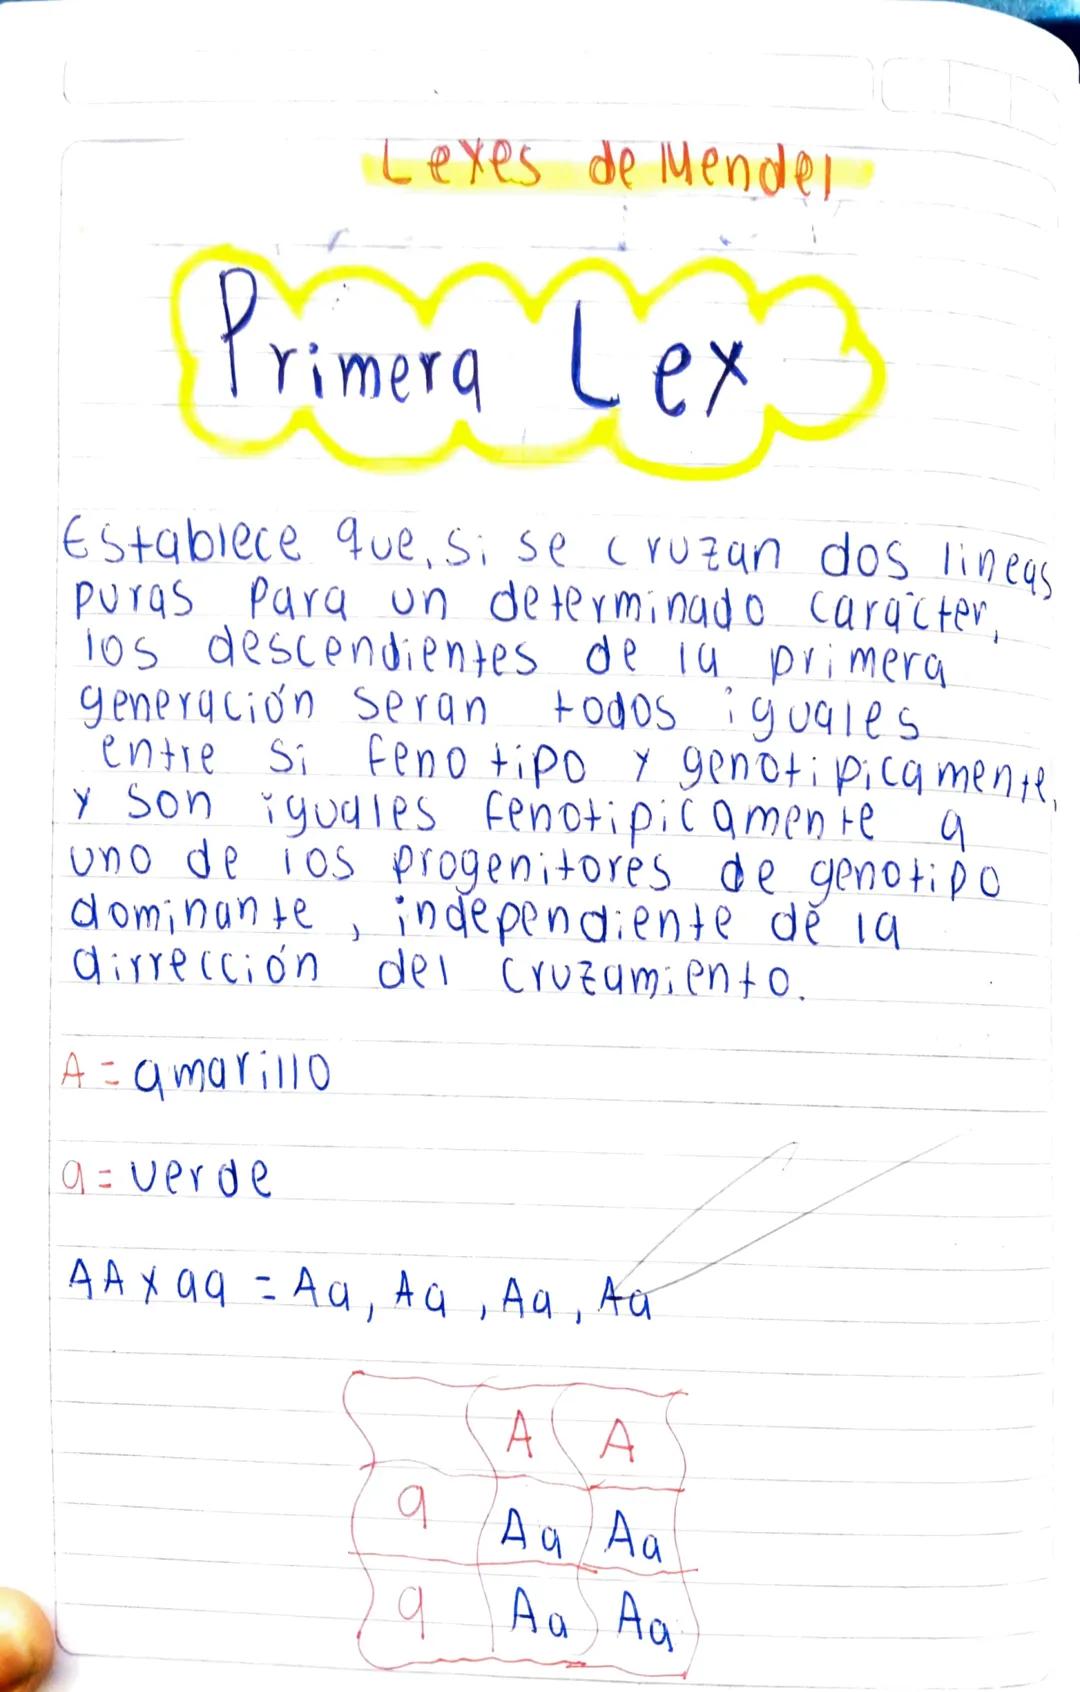 Leyes de Mendel
Primera Ley
Establece que, si se cruzan dos lineas
puras para un determinado carácter,
los descendientes de la primera
generación seran todos iguales
entre si fenotipo y genotipicamente,
y son iguales fenotipicamente a
uno de los progenitores de genotipo
dominante, independiente de la
dirrección del cruzamiento.
A = amarillo
a = verde
AA x aa = Aa, Aa, Aa, Aa
A A
a Aa Aa
a Aa Aa